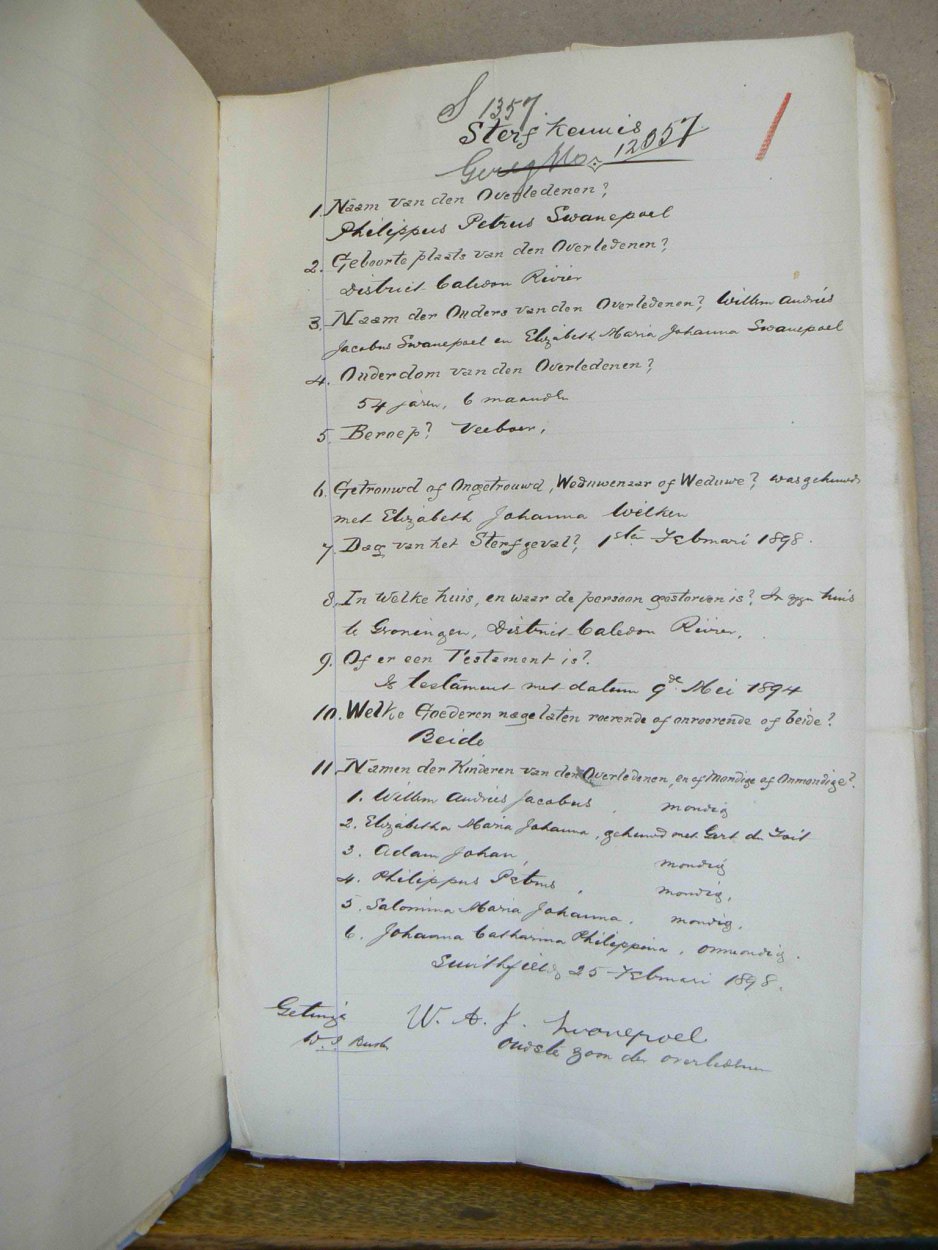 S 1357
Sterfkennis
Gereg No. 12057
1. Naam van den Overledenen?
Philippus Petrus Swanepoel
2. Geboorte plaats van den Overledenen?
District Caledon Rivier
3. Naam der Ouders van den Overledenen? Willem Andries
Jacobus Swanepoel en Elizabeth Maria Johanna Swanepoel
4. Ouderdom van den Overledenen?
54 jaren, 6 maanden
5. Beroep? Veeboer,
6. Getrouwd of Ongetrouwd, Weduwenaar of Weduwe? was gehuwd
met Elizabeth Johanna Wilken
7. Dag van het Sterfgeval? 1sten Februari 1898.
8. In Welke huis, en waar de persoon gestorven is? In zyn huis
te Groningen, District Caledon Rivier.
9. Of er een Testament is?
Is testament met datum 9de Mei 1894
10. Welke Goederen nagelaten roerende of onroerende of beide?
Beide
11. Namen der Kinderen van den Overledenen, en of Mondige of Onmondige?
1. Willem Andries Jacobus, mondig
2. Elizabetha Maria Johanna, gehuwd met Gert du Toit
3. Adam Johan, mondig
4. Philippus Petrus, mondig,
5. Salomina Maria Johanna, mondig,
6. Johanna Catharina Philippina, onmondig.
Smithfield 25 Februari 1898.
Getuige W. A. J. Swanepoel
oudste zoon der overledenen